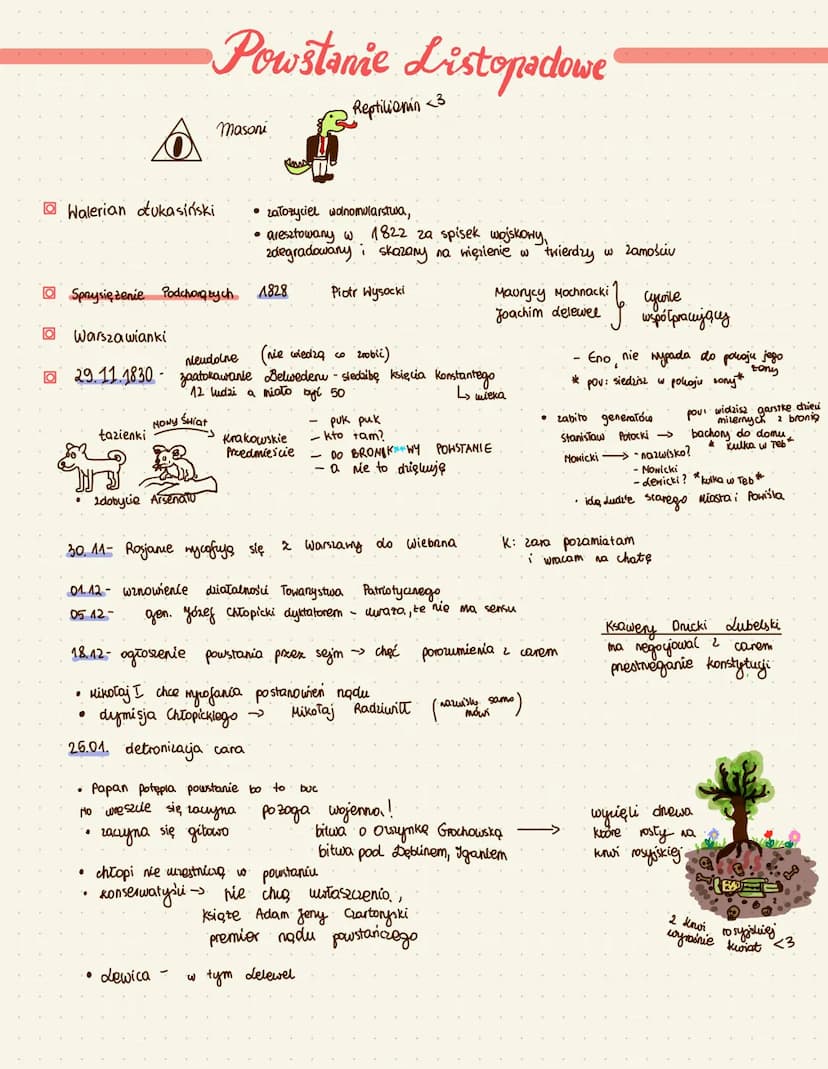 Powstanie Listopadowe
Masoni
Reptilianin <3
Walerian Łukasiński
• założyciel wolnomularstwa,
• aresztowany w 1822 za spisek wojskowy,
zdegradowany i skazany na więzienie w twierdzy w Zamościu
Sprzysiężenie Podchorążych 1828 Piotr Wysocki
Maurycy Mochnacki
Joachim Lelewel
Cywile
współpracujący
Warszawianki
29.11.1830 - nieudolne (nie wiedzą co zrobić)
zaatakowanie Belwederu - siedzibę księcia Konstantego
12 ludzi a miało być 50
↳ ucieka
- Eno, nie wypada do pokoju jego żony
* pov: siedzisz w pokoju żony*
Łazienki
Nowy Świat
Krakowskie
Przedmieście
- puk puk
- kto tam?
- DO BRONI K**WY POWSTANIE
- a nie to dziękuję
• zdobycie Arsenału
• zabito generałów
pov: widzisz garstkę dzieci
milernych z bronią
Stanisław Potocki → bachory do domu
* kulka w łeb*
Nowicki → - nazwisko?
- Nowicki
- Lewicki? *kulka w łeb*
• idą ludzie Starego Miasta i Powiśla
30.11- Rosjanie wycofują się z Warszawy do Wierzbna
K: zara pozamiatam
i wracam na chatę
01.12- wznowienie działalności Towarzystwa Patriotycznego
05.12- gen. Józef Chłopicki dyktatorem - uważa, że nie ma sensu
18.12- ogłoszenie powstania przez sejm → chęć porozumienia z carem
Ksawery Drucki Lubelski
ma negocjować z carem
przestrzeganie konstytucji
• Mikołaj I chce wycofania postanowień rządu
• dymisja Chłopickiego → Mikołaj Radziwiłł (nazwisko samo
mówi)
25.01. detronizacja cara
• Papan potępia powstanie bo to buc
No wreszcie się zaczyna pożoga wojenna!
• zaczyna się gitowo
bitwa o Olszynkę Grochowską →
bitwa pod Dęblinem, Iganiem
wycięli drzewa
które rosły na
krwi rosyjskiej
• chłopi nie uczestniczą w powstaniu
• konserwatyści → nie chcą uwłaszczenia,
Książe Adam Jerzy Czartoryski
premier rządu powstańczego
z krwi rosyjskiej
wyrośnie kwiat <3
• Lewica - w tym Lelewel